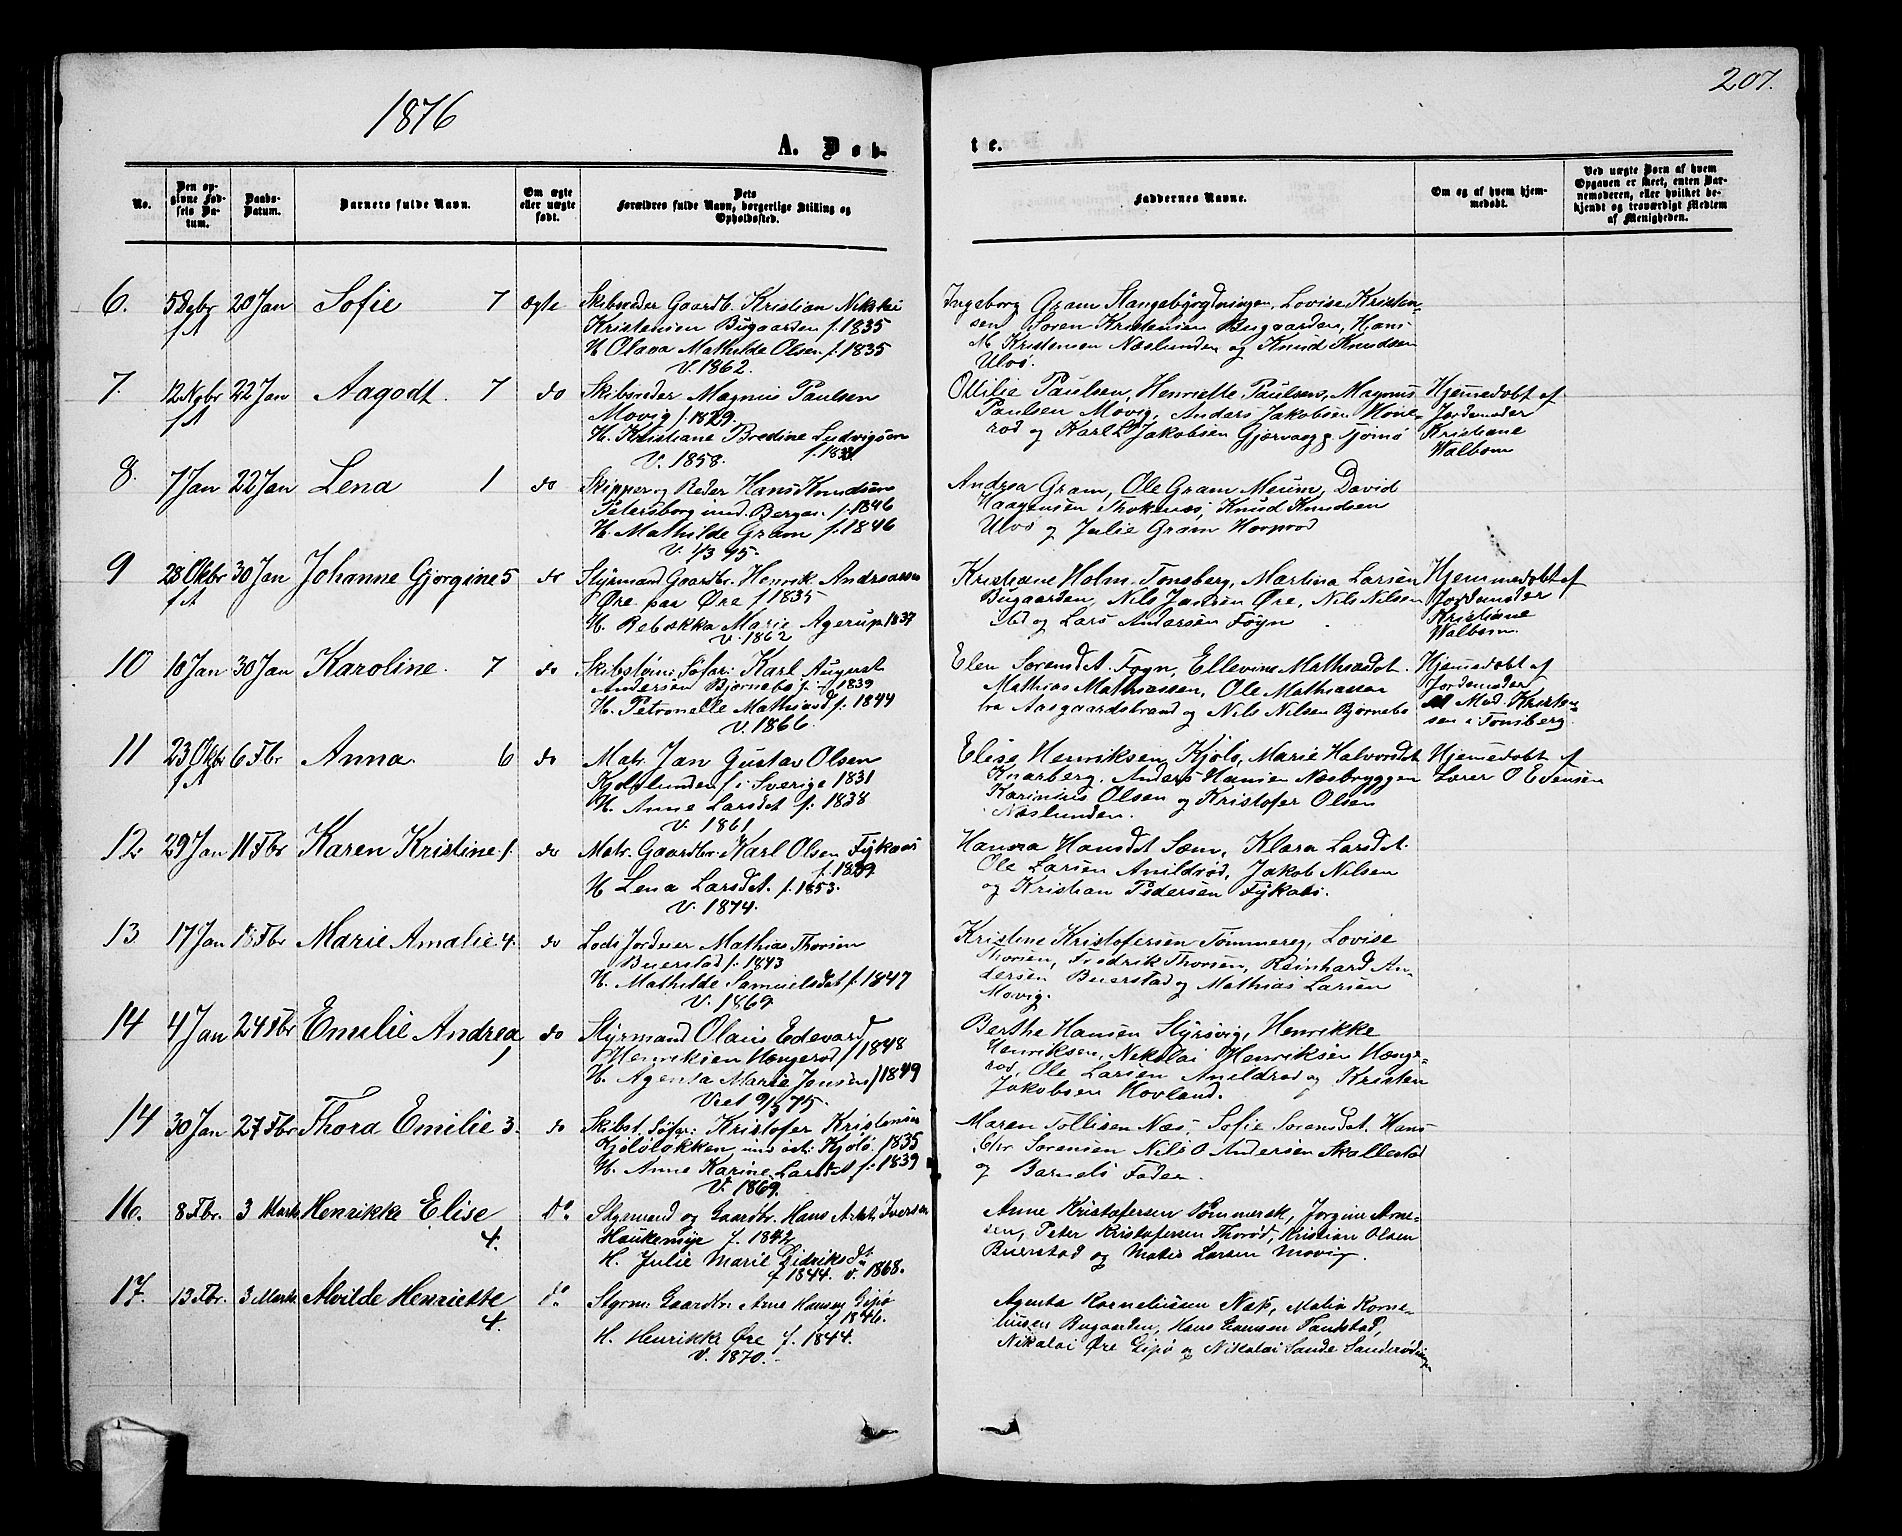 1876
207.
A. Døb-
te.
No.
Den op-
givne Fød-
sels Da-
tum.
Daabs-
Datum.
Barnets fulde Navn.
Om ægte
eller uægte
født.
Dets
Forældres fulde Navn, borgerlige Stilling og
Opholdssted.
Faddernes Navne.
Om og af hvem hjem-
medøbt.
Ved uægte Børn af hvem
Opgaven er skeet, enten Bar-
nemoderen, eller hvilket be-
kjendt og troværdigt Medlem
af Menigheden.
6. 5 Dcbr 20 Jan Sofie 7 ægte
f A
Skibsreder Gaardb. Kristian Nikolai
Kristensen Bugaarden f. 1835
H Olava Mathilde Olsen f. 1835
V. 1862.
Ingeborg Gram Stangebygdningen, Lovise Kristen-
sen Søren Kristensen Bugaarden, Hans
M Kristensen Næslunden og Knud Knudsen
Ulvø.
7. 12 Nvbr 22 Jan Aagodt 7 do
f A
Skibsreder Magnus Paulsen
Movig f. 1829.
H. Kristiane Bredine Ludvigsen
V. 1858.
Ottilie Paulsen, Henriette Paulsen, Magnus
Paulsen Movig, Anders Jakobsen Høie-
rød og Karl L Jakobsen Tjømø
Hjemedøbt af
Jordemoder
Kristiane
Walbom
8. 7 Jan 22 Jan Lena 1 do
Skipper og Reder Hans Knudsen
Petersborg und. Bergan f. 1846
H. Mathilde Gram f. 1846
V. 1/3 75.
Andrea Gram, Ole Gram Meum, David
Haagensen Knud Knudsen
Ulvø og Julie Gram
9 28 Okbr 30 Jan Johanne Gjørgine 5 do
f A
Styrmand Gaardbr. Henrik Andreassen
Øre paa Øre f. 1835
H. Rebekka Marie Agerup 1837
V. 1862
Kristiane Holm Tønsberg, Martina Larsen
Bugaarden, Nils Jansen Øre, Nils Nilsen
ibd og Lars Andersen Føyn
Hjemmedøbt af
Jordemoder
Kristiane
Walbom.
10 10 Jan 30 Jan Karoline. 7 do
Skibstøm: Søfar: Karl August
Andersen Bjørnebo f. 1839
H. Petronelle Mathiasd f. 1844
V. 1866.
Elen Sørensdt. Føyn, Ellevine Mathiasdt.
Mathias Mathiassen, Ole Mathiassen
fra Aasgaardstrand og Nils Nilsen Bjørnebo
Hjemedøbt af
Jordemoder
Mad. Kristen-
sen i Tønsberg.
11 23 Okbr 6 Fbr Anna. 6 do
f A
Matr. Jan Gustav Olsen
f i Sverige 1831
H. Anne Larsdt f. 1838
V. 1861
Elise Henriksen, Kjøle, Marie Halvorsdt
Knarberg. Anders Hansen Næsbryggen
Karinius Olsen og Kristofer Olsen
Næslunden.
Hjemedøbt af
Lærer O Evensen
12 29 Jan 11 Fbr Karen Kristine. 1. do
Matr. Gaardbr. Karl Olsen
f. 1849
H Lena Larsdt. f. 1853.
V. 1874.
Hansdt Sæm, Klara Larsdt.
Ole Larsen Arnildrød, Jakob Nilsen
og Kristian Pedersen
13 17 Jan 18 Fbr Marie Amalie 4. do
Lods Jordeier Mathias Thorsen
Buerstad f. 1843
H. Mathilde Samuelsdt f. 1847
V. 1869.
Kristine Kristofersen Tømmereg, Lovise
Thorsen, Fredrik Thorsen, Reinhard An-
dersen Buerstad og Mathias Larsen
Movig.
14 4 Jan 24 Fbr Emilie Andrea, 1 do
Styrmand Olaus Edevard
Henriksen Hengerød f 1848
H. Agenta Marie Jensen f 1849
Viet 9/5 75.
Berthe Hansen Styrsvig, Henrikke
Henriksen, Nikolai Henriksen Henge-
rød, Ole Larsen Arnildrød og Kristen
Jakobsen Hovland.
14 30 Jan 27 Fbr Thora Emilie 3. do
Skibst. Søfar: Kristofer Kristensen
Kjøleløkken und. Kjølø. f. 1835
H. Anne Karine Larsdt f. 1839
V. 1869.
Maren Tollisen Næs, Sofie Sørensdt. Hans
Chr Sørensen Nils O Andersen Skallestad
og Barnets Fader.
16. 8 Fbr. 3 Marts Henrikke Elise 4. do.
Styrmand og Gaardbr. Hans Iversen
Haukemyr f. 1842
H. Julie Marie Didriksdt
f 1844. v. 1868.
Anne Kristofersen Tømmersk, Jørgine Arne-
sen, Peter Kristofersen Thorød, Kristian Olsen
Buerstad og Mater Larsen Movig.
17. 13 Fbr. 3 Marts Alvilde Henriette 4. do
Styrm: Gaardbr: Arne Hansen Gipø
f 1846.
H. Henrikke Øre f. 1844.
V. 1870.
Agenta Korneliussen Næs, Matia Korne-
liusen Bugaarden, Hans Evensen Tandstad,
Nikolai Øre Gipø og Nikolai Sande